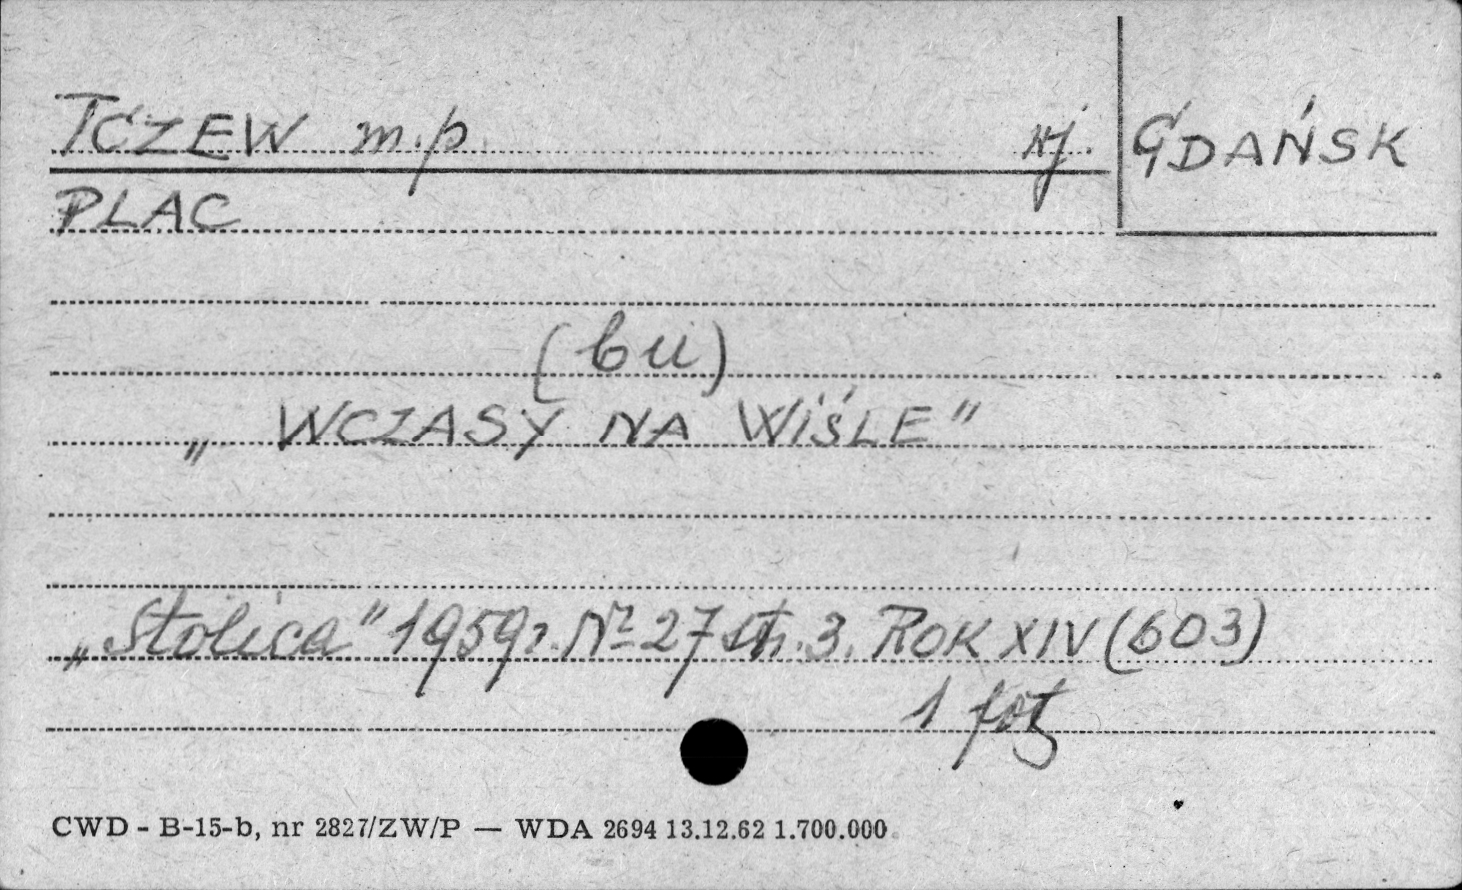 TCZEW m.p. wj. GDAŃSK
PLAC
(bu)
„WCZASY NA WIŚLE"
„Stolica" 1959r. Nr 27 str. 3. ROK XIV (603)
1 fot
CWD - B-15-b, nr 2827/ZW/P — WDA 2694 13.12.62 1.700.000